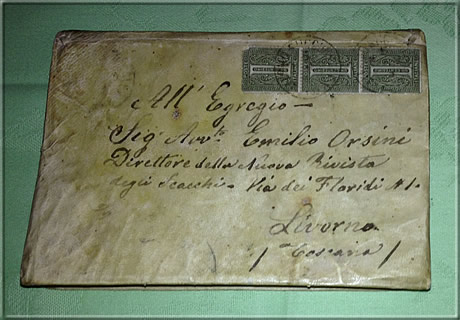 All' Egregio —
Sigr Avvto Emilio Orsini
Direttore della Nuova Rivista
degli Scacchi - Via dei Floridi N 1.
Livorno
/ Toscana /